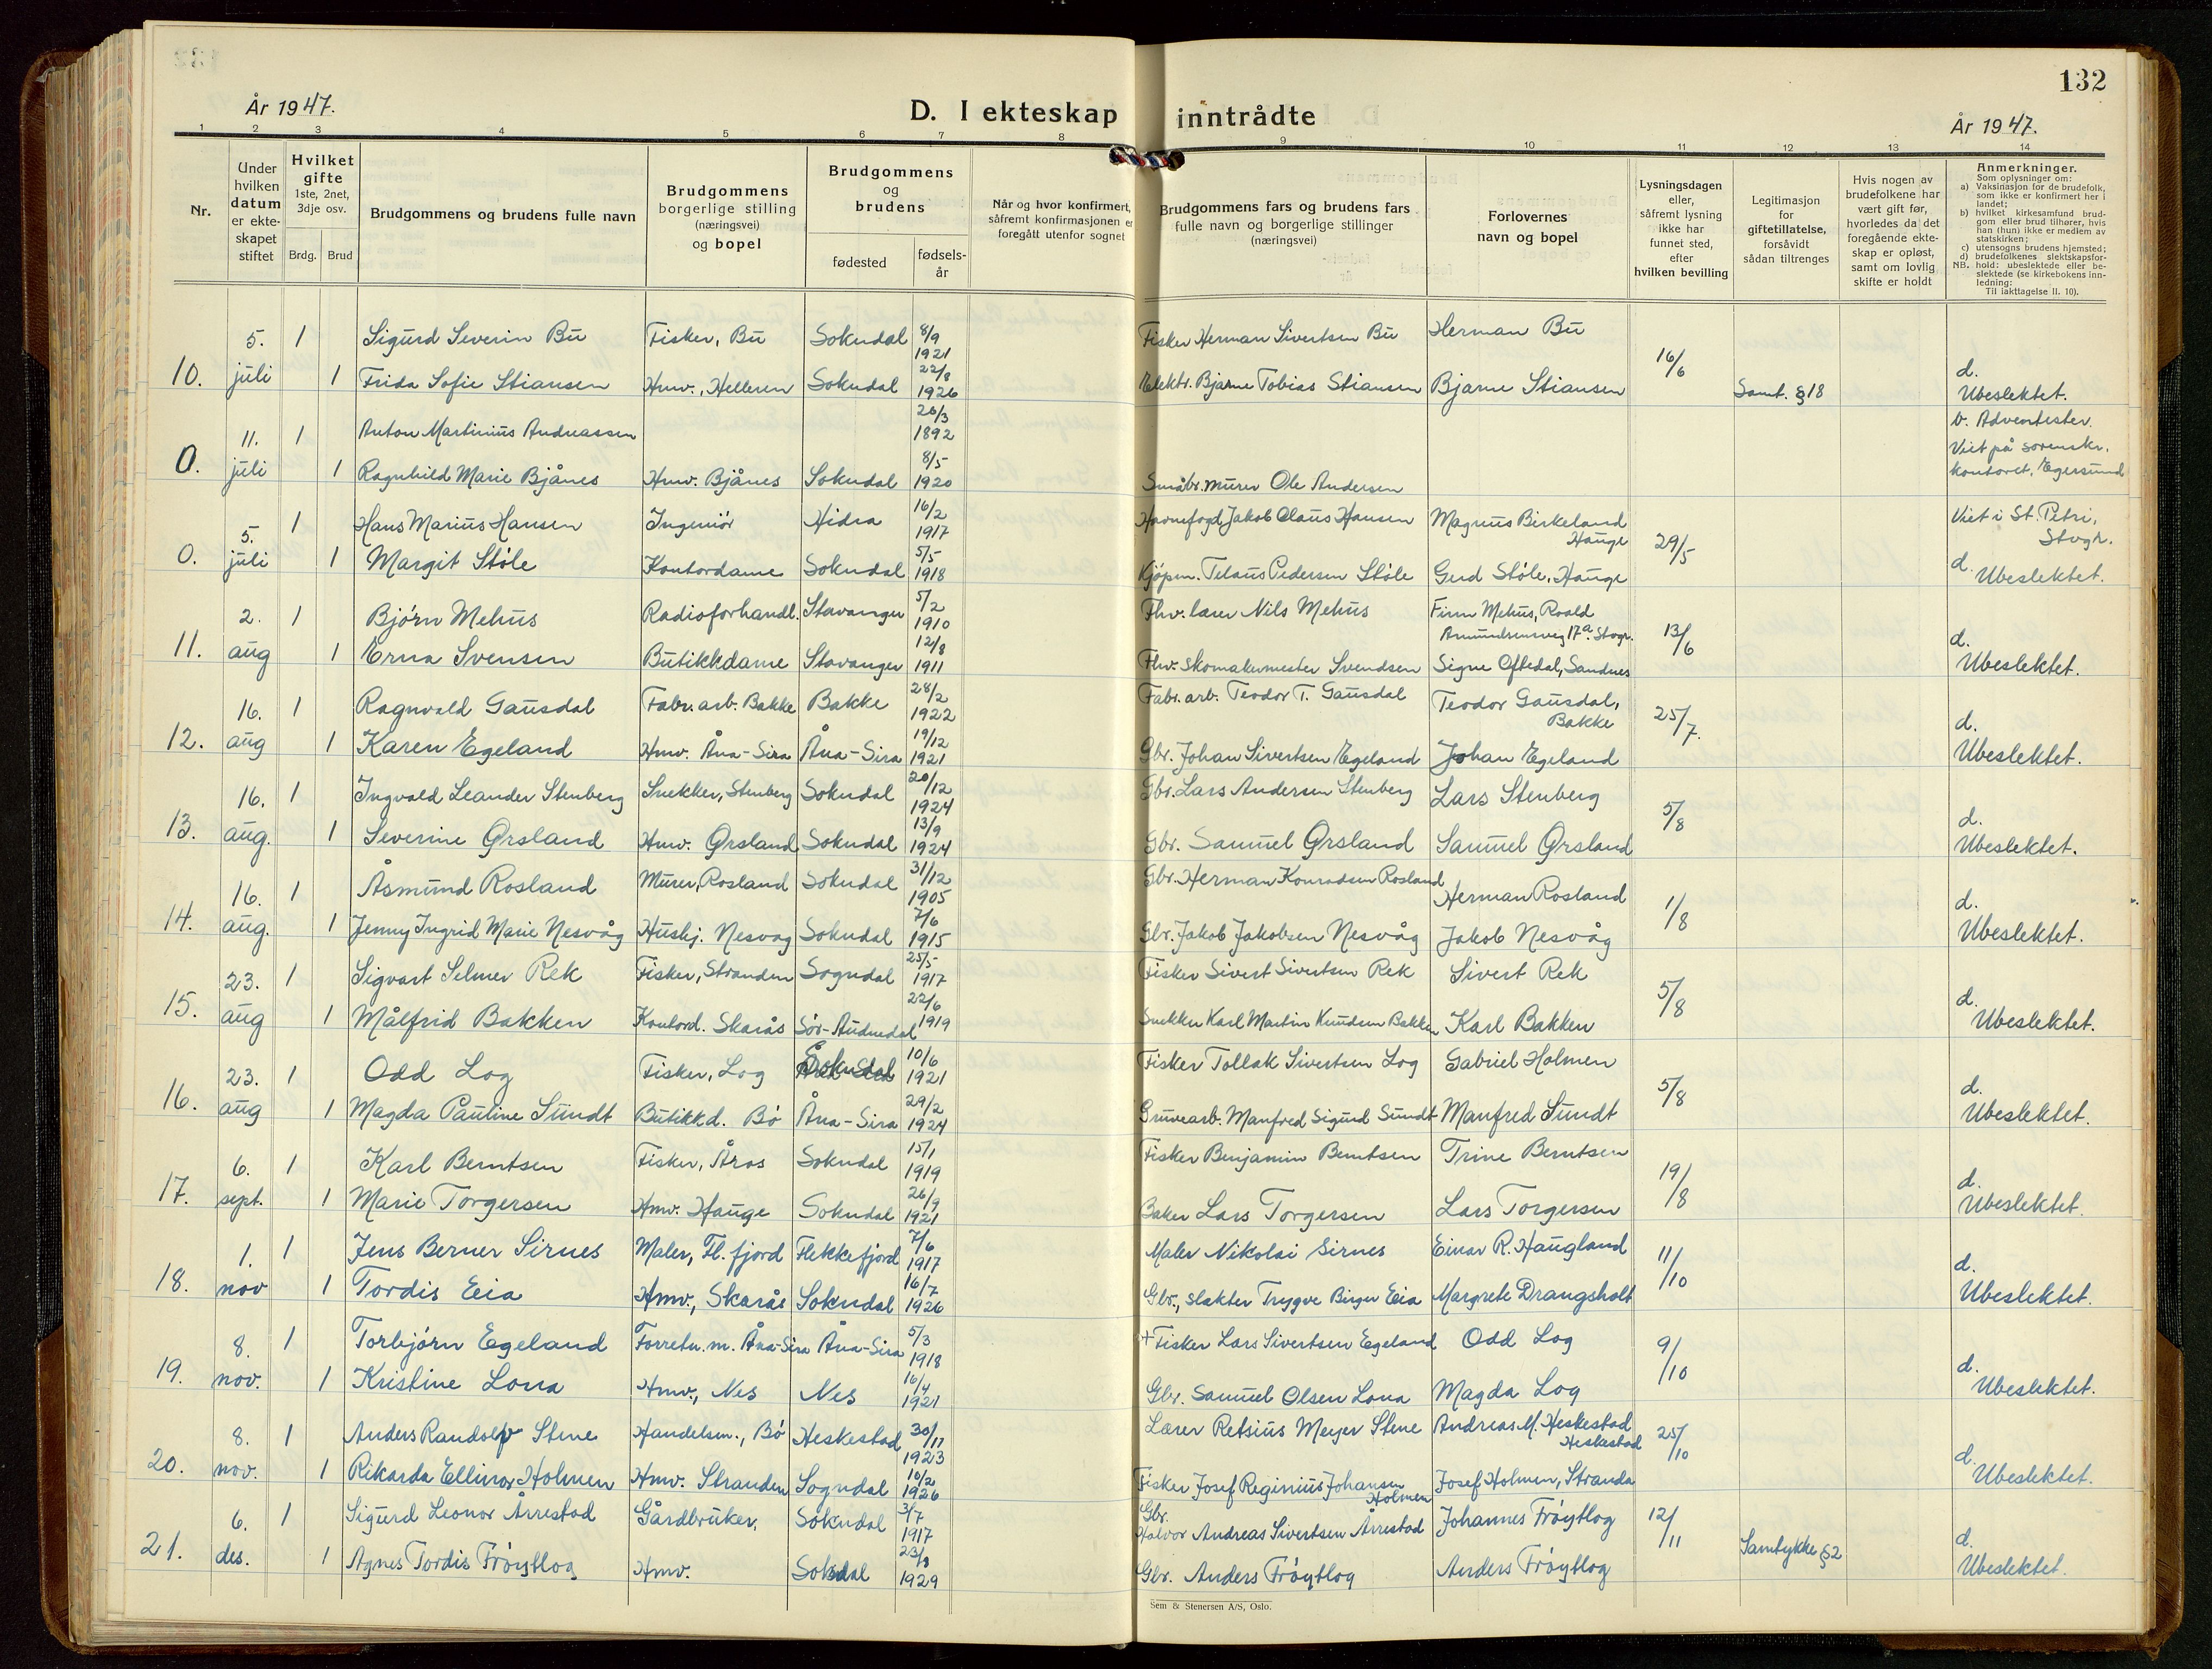 132
År 1947.
D. I ekteskap inntrådte
År 1947.
1 2 3 4 5 6 7 8 9 10 11 12 13 14
Nr.
Under hvilken datum er ekte-skapet stiftet
Hvilket gifte 1ste, 2net, 3dje osv.
Brdg. Brud
Brudgommens og brudens fulle navn
Brudgommens borgerlige stilling (næringsvei) og bopel
Brudgommens og brudens
fødested
fødsels-år
Når og hvor konfirmert, såfremt konfirmasjonen er foregått utenfor sognet
Brudgommens fars og brudens fars fulle navn og borgerlige stillinger (næringsvei)
Forlovernes navn og bopel
Lysningsdagen eller, såfremt lysning ikke har funnet sted, efter hvilken bevilling
Legitimasjon for giftetillatelse, forsåvidt sådan tiltrenges
Hvis nogen av brudefolkene har vært gift før, hvorledes da det foregående ekte-skap er opløst, samt om lovlig skifte er holdt
Anmerkninger.
Som oplysninger om:
a) Vaksinasjon for de brudefolk, som ikke er konfirmert her i landet;
b) hvilket kirkesamfund brud-gom eller brud tilhører, hvis han (hun) ikke er medlem av statskirken;
c) utensogns brudens hjemsted;
d) brudefolkenes slektskapsfor-hold: ubeslektede eller be-slektede (se kirkebokens inn-ledning:
NB. Til iakttagelse II. 10).
10. 5. juli 1 Sigurd Severin Bu Fisker, Bu Sokndal 8/9 1921 Fisker Herman Sivertsen Bu Herman Bu 16/6
1 Frida Sofie Stiansen Hmv., Helleren Sokndal 22/8 1926 Elektr. Bjarne Tobias Stiansen Bjarne Stiansen Samt. §18 d. Ubeslektet.
0. 11. juli 1 Anton Martinius Andreassen 26/3 1892 b. Adventister. Viet på sorenskr. kontoret, Egersund
1 Ragnhild Marie Bjånes Hmv. Bjånes Sokndal 8/5 1920 Småbr. murer Ole Andersen
0. 5. juli 1 Hans Marius Hansen Ingeniør Hidra 16/2 1917 Havnefogd Jakob Claus Hansen Magnus Birkeland Hauge 29/5 Viet i St. Petri, Stvgr.
1 Margit Støle Kontordame Sokndal 5/5 1918 Kjøpm. Telaus Pedersen Støle Gerd Støle, Hauge d. Ubeslektet.
11. 2. aug 1 Bjørn Mehus Radioforhandl. Stavanger 5/2 1910 Fhv. lærer Nils Mehus Finn Mehus, Roald Amundsensveg 17a. Stvgr. 13/6
1 Erna Svensen Butikkdame Stavanger 12/8 1911 Fhv. skomakermester Svendsen Signe Oftedal, Sandnes d. Ubeslektet.
12. 16. aug 1 Ragnvald Gausdal Fabr. arb. Bakke Bakke 28/2 1922 Fabr. arb. Teodor T. Gausdal Teodor Gausdal, Bakke 25/7.
1 Karen Egeland Hmv. Åna-Sira Åna-Sira 19/12 1921 Gbr. Johan Sivertsen Egeland Johan Egeland d. Ubeslektet.
13. 16. aug. 1 Ingvald Leander Stenberg Snekker, Stenberg Sokndal 20/12 1924 Gbr. Lars Andersen Stenberg Lars Stenberg 5/8
1 Severine Ørsland Hmv. Ørsland Sokndal 13/9 1924 Gbr. Samuel Ørsland Samuel Ørsland d. Ubeslektet.
14. 16. aug. 1 Åsmund Rosland Murer, Rosland Sokndal 31/12 1905 Gbr. Herman Konradsen Rosland Herman Rosland 1/8
1 Jenny Ingrid Marie Nesvåg Hushj. Nesvåg Sokndal 7/6 1915 Gbr. Jakob Jakobsen Nesvåg Jakob Nesvåg d. Ubeslektet.
15. 23. aug 1 Sigvart Selmer Rek Fisker, Stranden Sogndal 25/5 1917 Fisker Sivert Sivertsen Rek Sivert Rek 5/8
1 Målfrid Bakken Kontord. Skarås Sør-Audnedal 22/6 1919 Snekker Karl Martin Knudsen Bakken Karl Bakken d. Ubeslektet.
16. 23. aug 1 Odd Log Fisker, Log Sokndal 10/6 1921 Fisker Tollak Sivertsen Log Gabriel Holmen 5/8
1 Magda Pauline Sundt Butikkd. Bø Åna-Sira 29/2 1924 Gruvearb. Manfred Sigurd Sundt Manfred Sundt d. Ubeslektet.
17. 6. sept. 1 Karl Berntsen Fisker, Åros Sokndal 15/1 1919 Fisker Benjamin Berntsen Trine Berntsen 19/8
1 Marie Torgersen Hmv. Hauge Sokndal 26/9 1921 Baker Lars Torgersen Lars Torgersen d. Ubeslektet.
18. 1. nov 1 Jens Berner Sirnes Maler, Fl. fjord Flekkefjord 7/6 1917 Maler Nikolai Sirnes Einar R. Haugland 11/10
1 Tordis Eia Hmv., Skarås Sokndal 16/7 1926 Gbr., slakter Trygve Birger Eia Margrete Drangsholt d. Ubeslektet.
19. 8. nov. 1 Torbjørn Egeland Forretn. m. Åna-Sira Åna-Sira 5/3 1918 + Fisker Lars Sivertsen Egeland Odd Log 9/10
1 Kristine Lona Hmv., Nes Nes 16/4 1921 Gbr. Samuel Olsen Lona Magda Log d. Ubeslektet.
20. 8. nov. 1 Anders Randolf Stene Handelsm., Bø Heskestad 30/11 1923 Lærer Retsius Meyer Stene Andreas M. Heskestad Heskestad 25/10
1 Rikarda Ellinor Holmen Hmv. Stranden Sogndal 10/2 1926 Fisker Josef Reginius Johansen Holmen Josef Holmen, Stranda d. Ubeslektet.
21. 6. des. 1 Sigurd Leonor Årrestad Gårdbruker, Sokndal 3/7 1917 Gbr. Halvor Andreas Sivertsen Årrestad Johannes Frøytlog 12/11
1 Agnes Tordis Frøytlog Hmv. Sokndal 23/8 1929 Gbr. Anders Frøytlog Anders Frøytlog Samtykke §2 d. Ubeslektet.
Sem & Stenersen A/S, Oslo.